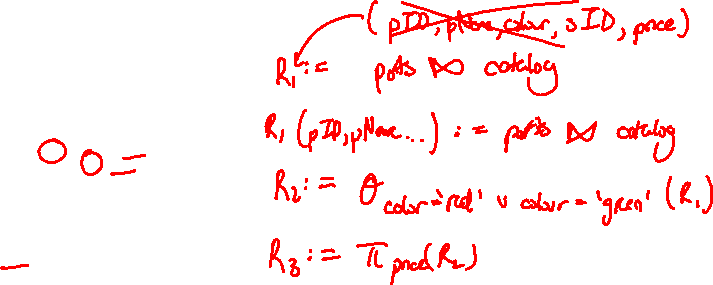 (pID, pName, color, sID, price)
R₁ := parts ⋈ catalog
R₁ (pID, pName...) := parts ⋈ catalog
R₂ := σ color='red' ∨ colour='green' (R₁)
R₃ := π price(R₂)